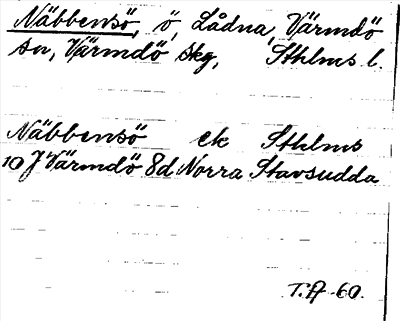 Näbbensö, ö, Lådna, Värmdö
sn, Värmdö skg, Sthlms l.
Näbbensö ek Sthlms
10 J Värmdö 8d Norra Stavsudda
T.A-60.